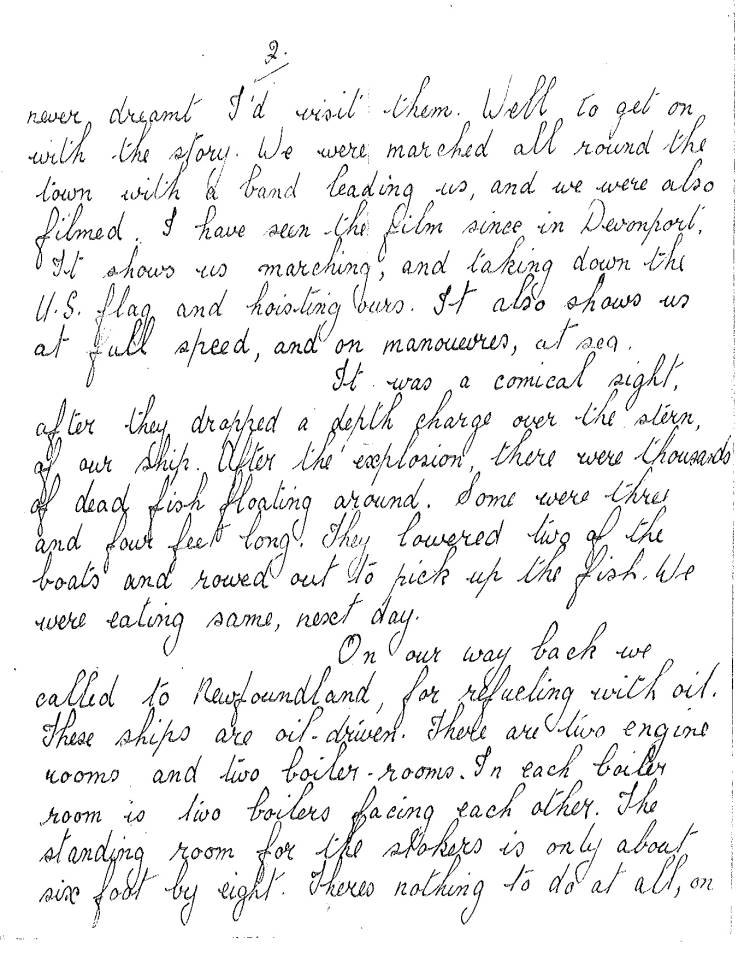 2.
never dreamt I'd visit them. Well to get on
with the story. We were marched all round the
town with a band leading us, and we were also
filmed. I have seen the film since in Devonport.
It shows us marching, and taking down the
U.S. flag and hoisting ours. It also shows us
at full speed, and on manouevres, at sea.
It was a comical sight,
after they dropped a depth charge over the stern,
of our ship. After the explosion, there were thousands
of dead fish floating around. Some were three
and four feet long. They lowered two of the
boats and rowed out to pick up the fish. We
were eating same, next day.
On our way back we
called to Newfoundland, for refueling with oil.
These ships are oil-driven. There are two engine
rooms and two boiler-rooms. In each boiler
room is two boilers facing each other. The
standing room for the stokers is only about
six foot by eight. Theres nothing to do at all, on